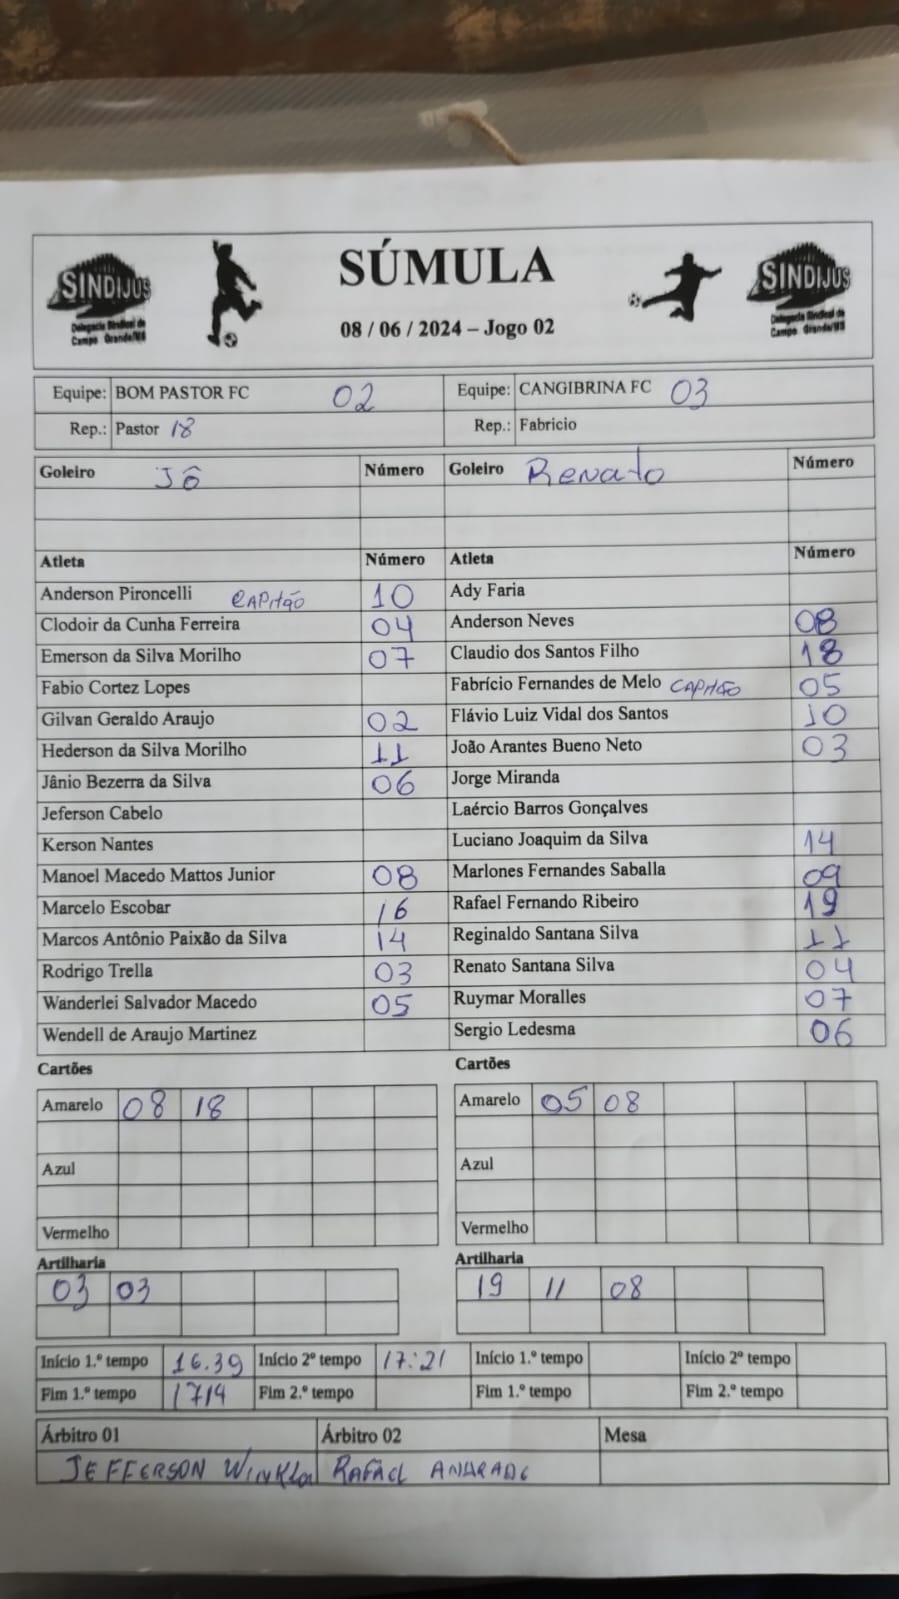 SÚMULA
SINDIJUS
Delegacia Sindical de
Campo Grande/MS
08 / 06 / 2024 – Jogo 02
SINDIJUS
Delegacia Sindical de
Campo Grande/MS
Equipe: BOM PASTOR FC 02 Equipe: CANGIBRINA FC 03
Rep.: Pastor 18 Rep.: Fabricio
Goleiro Jô Número Goleiro Renato Número
Atleta Número Atleta Número
Anderson Pironcelli CAPITÃO 10 Ady Faria
Clodoir da Cunha Ferreira 04 Anderson Neves 08
Emerson da Silva Morilho 07 Claudio dos Santos Filho 18
Fabio Cortez Lopes Fabrício Fernandes de Melo CAPITÃO 05
Gilvan Geraldo Araujo 02 Flávio Luiz Vidal dos Santos 10
Hederson da Silva Morilho 11 João Arantes Bueno Neto 03
Jânio Bezerra da Silva 06 Jorge Miranda
Jeferson Cabelo Laércio Barros Gonçalves
Kerson Nantes Luciano Joaquim da Silva 14
Manoel Macedo Mattos Junior 08 Marlones Fernandes Saballa 09
Marcelo Escobar 16 Rafael Fernando Ribeiro 19
Marcos Antônio Paixão da Silva 14 Reginaldo Santana Silva 11
Rodrigo Trella 03 Renato Santana Silva 04
Wanderlei Salvador Macedo 05 Ruymar Moralles 07
Wendell de Araujo Martinez Sergio Ledesma 06
Cartões Cartões
Amarelo 08 18 Amarelo 05 08
Azul Azul
Vermelho Vermelho
Artilharia Artilharia
03 03 19 11 08
Início 1.º tempo 16.39 Início 2º tempo 17:21 Início 1.º tempo Início 2º tempo
Fim 1.º tempo 1714 Fim 2.º tempo Fim 1.º tempo Fim 2.º tempo
Árbitro 01 Árbitro 02 Mesa
JEFFERSON RAFAEL ANDRADE